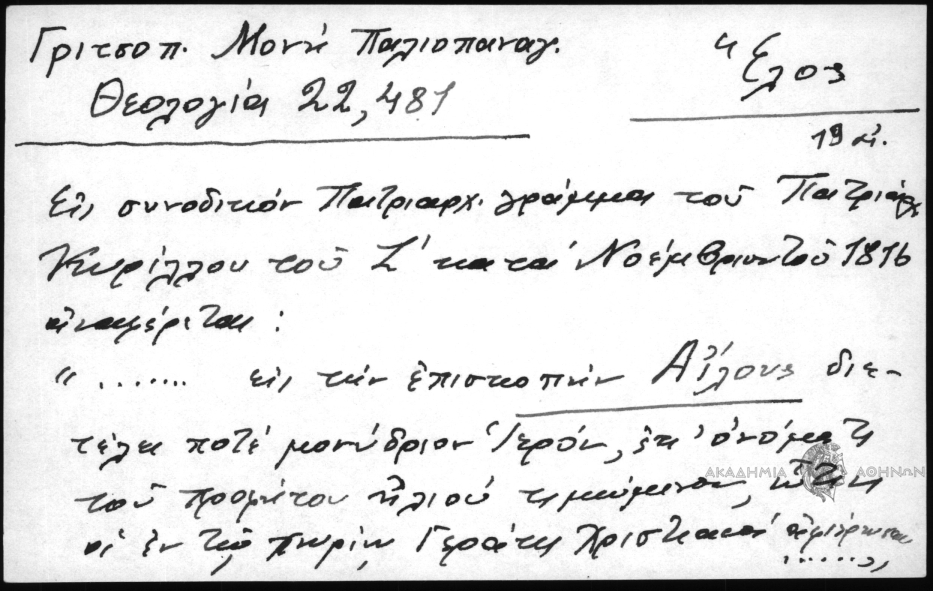 Γριτσοπ. Μονὴ Παλιοπαναγ.
Θεολογία 22,481
Ἕλος
19 αἰ.
Εἰς συνοδικόν Πατριαρχ. γράμμα τοῦ Πατριάρχ
Κυρίλλου τοῦ Σ΄ κατά Νοέμβριον τοῦ 1816
ἀναφέρεται :
" ........ εἰς τὴν ἐπισκοπὴν Αἴλους διε-
τέλει ποτέ μονύδριον Ἱερόν, ἐπ' ὀνόματι
τοῦ προφήτου Ἠλιού τιμώμενον,
οἱ ἐν τῷ χωρίῳ Γεράκι Χριστιανοί ἀφιέρωσαν
......."
ΑΚΑΔΗΜΙΑ ΑΘΗΝΩΝ